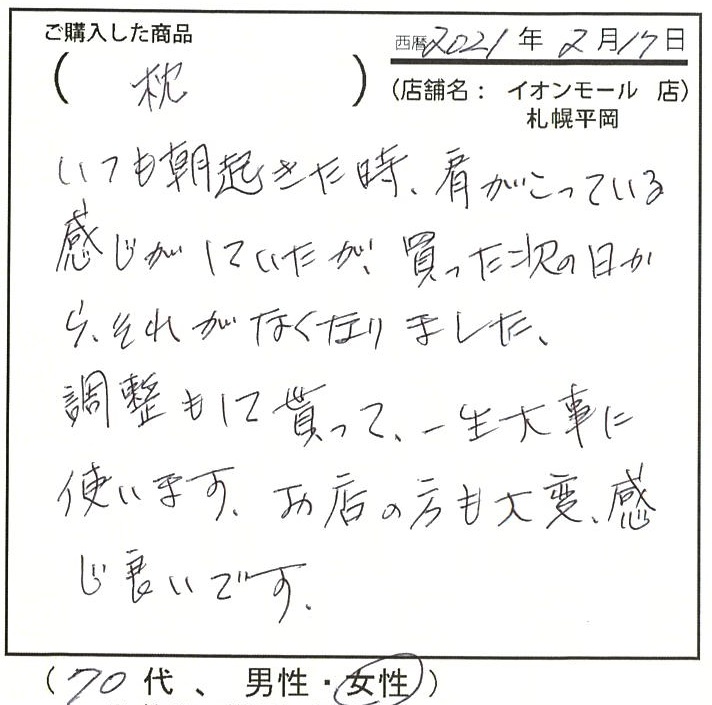 ご購入した商品
西暦2021年2月17日
(枕)
(店舗名： イオンモール 店)
札幌平岡
いつも朝起きた時、肩がこっている
感じがしていたが、買った次の日か
ら、それがなくなりました、
調整もして貰って、一生大事に
使います、お店の方も大変、感
じ良いです、
(70代、男性・女性)